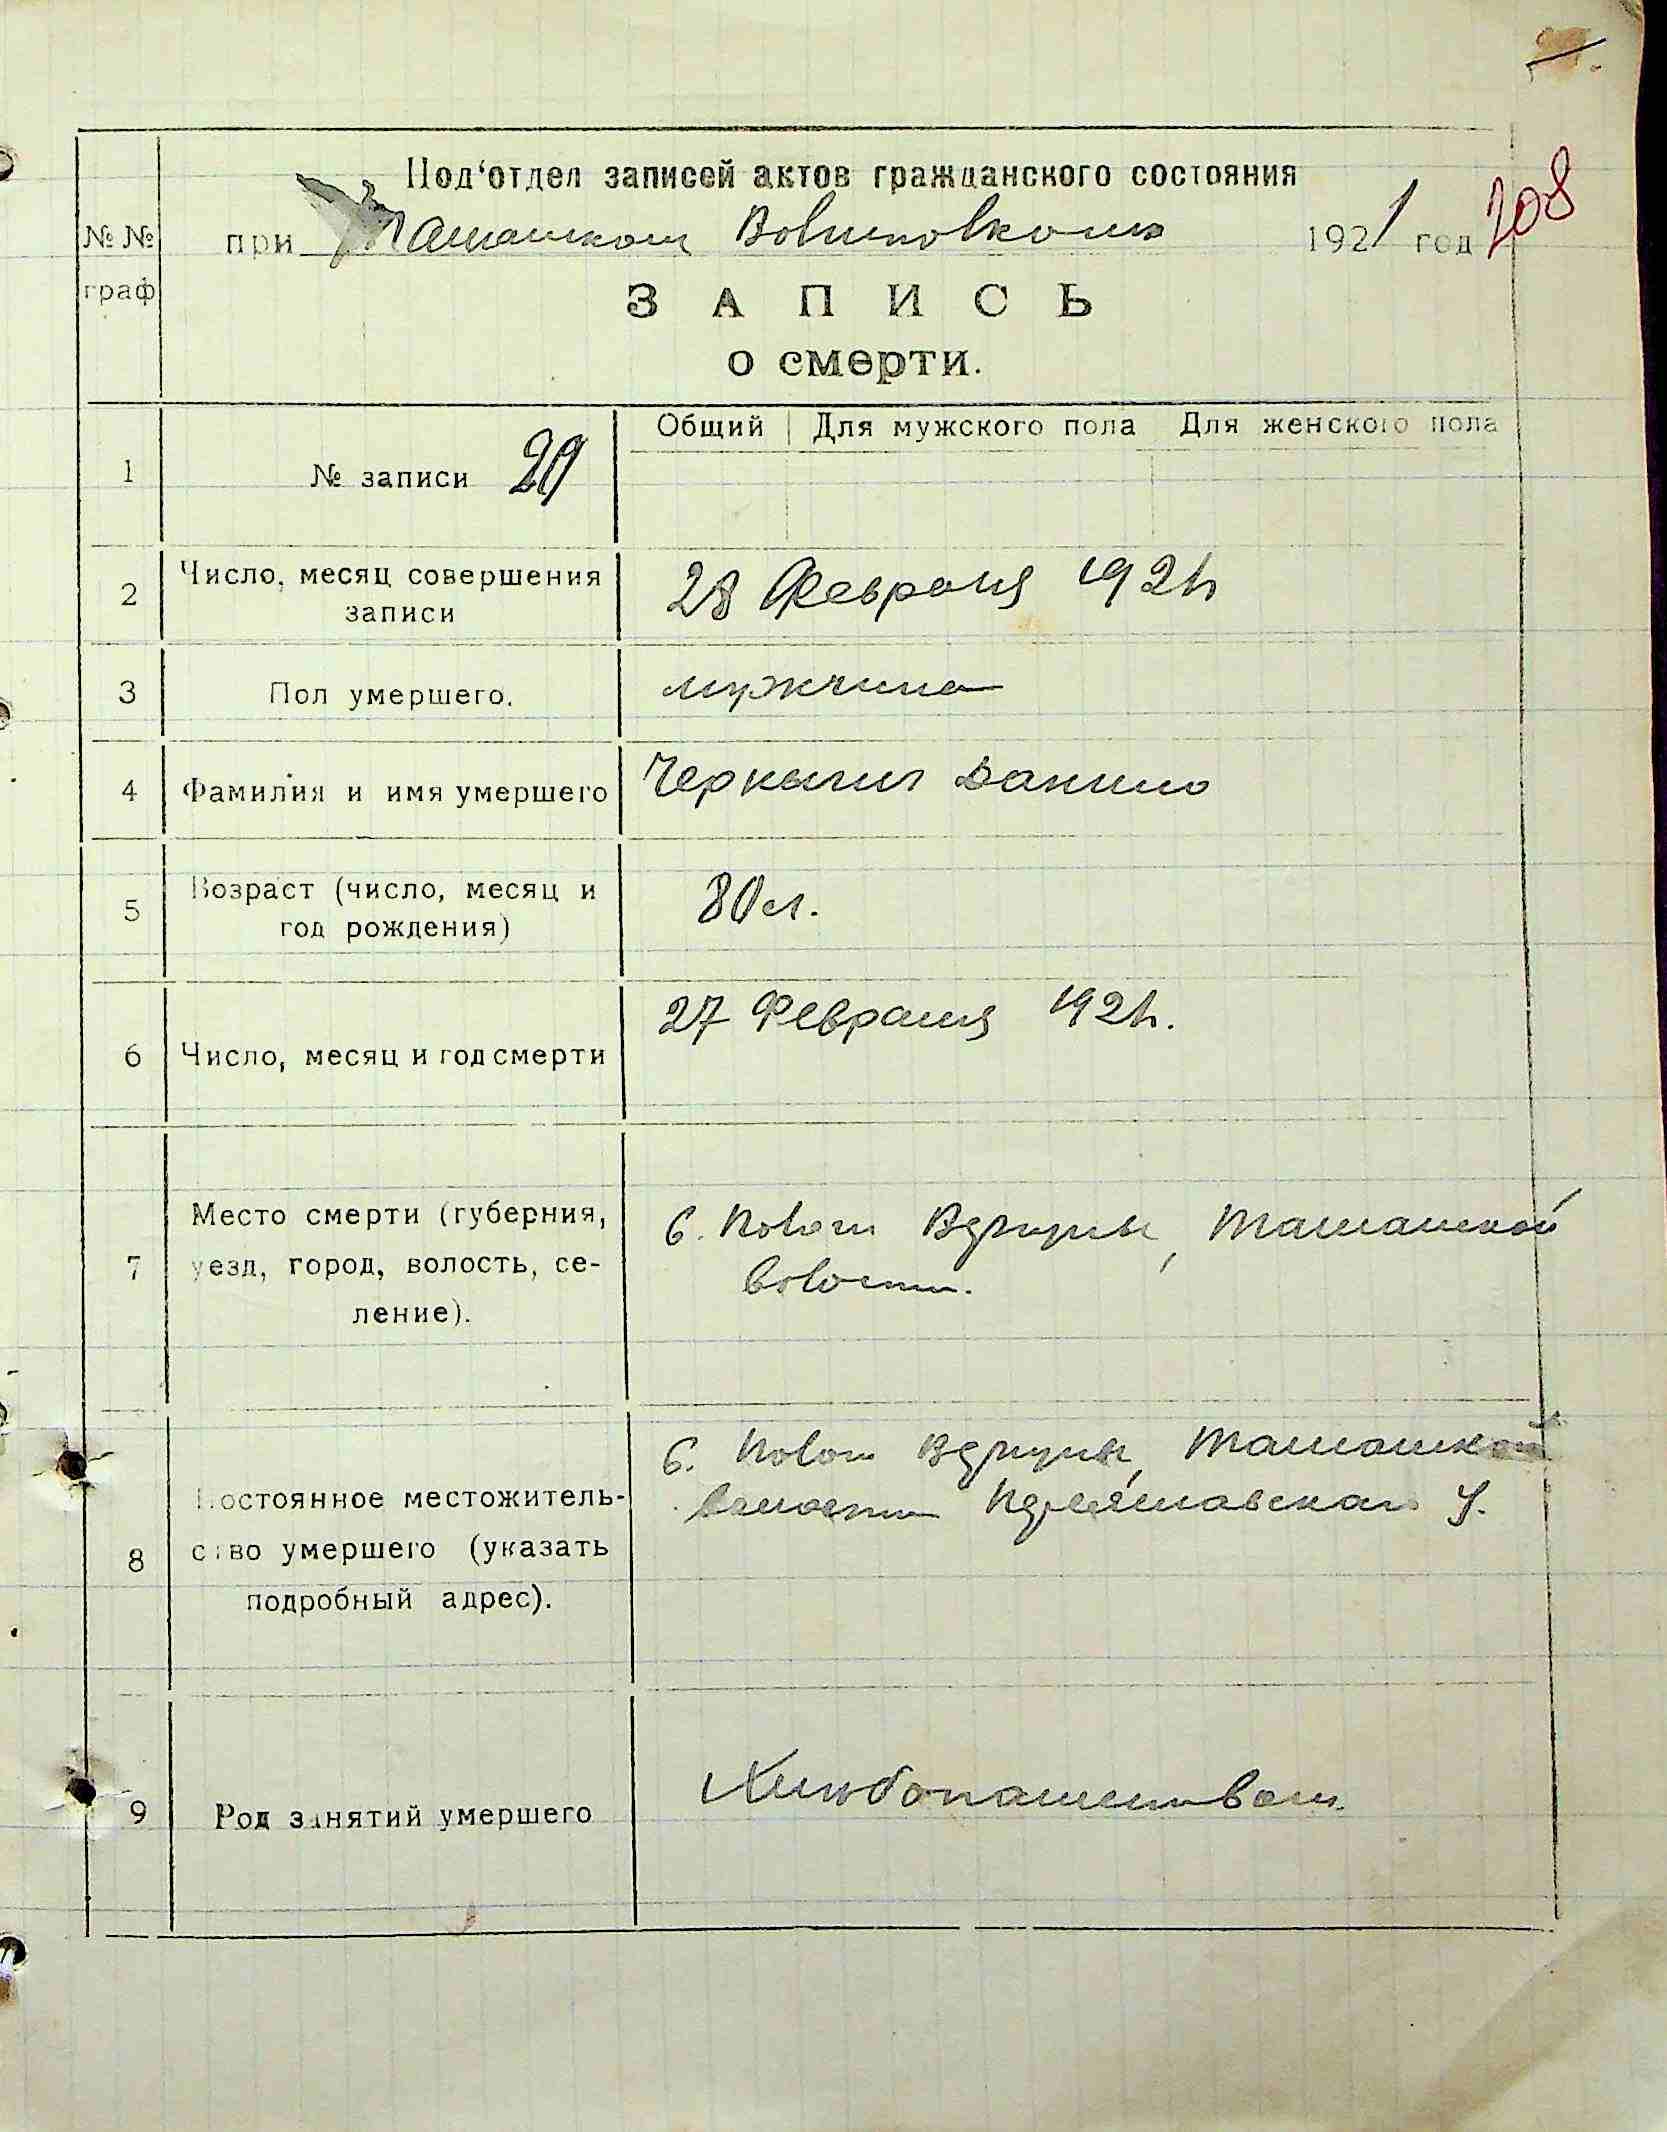 Под‘отдел записей актов гражданского состояния
№ № при Ташашком Волисполкома 1921 год 208
граф
ЗАПИСЬ
о смерти.
Общий Для мужского пола Для женского пола
1 № записи 29
2 Число, месяц совершения 28 Февраля 1921г
записи
3 Пол умершего. мужчина
4 Фамилия и имя умершего Данило
5 Возраст (число, месяц и 80 л.
год рождения)
6 Число, месяц и год смерти 27 Февраля 1921г.
7 Место смерти (губерния, Ташашской
уезд, город, волость, се- волости.
ление).
8 Постоянное местожитель- Ташашской
ство умершего (указать волости у.
подробный адрес).
9 Род занятий умершего Хлебопашеством